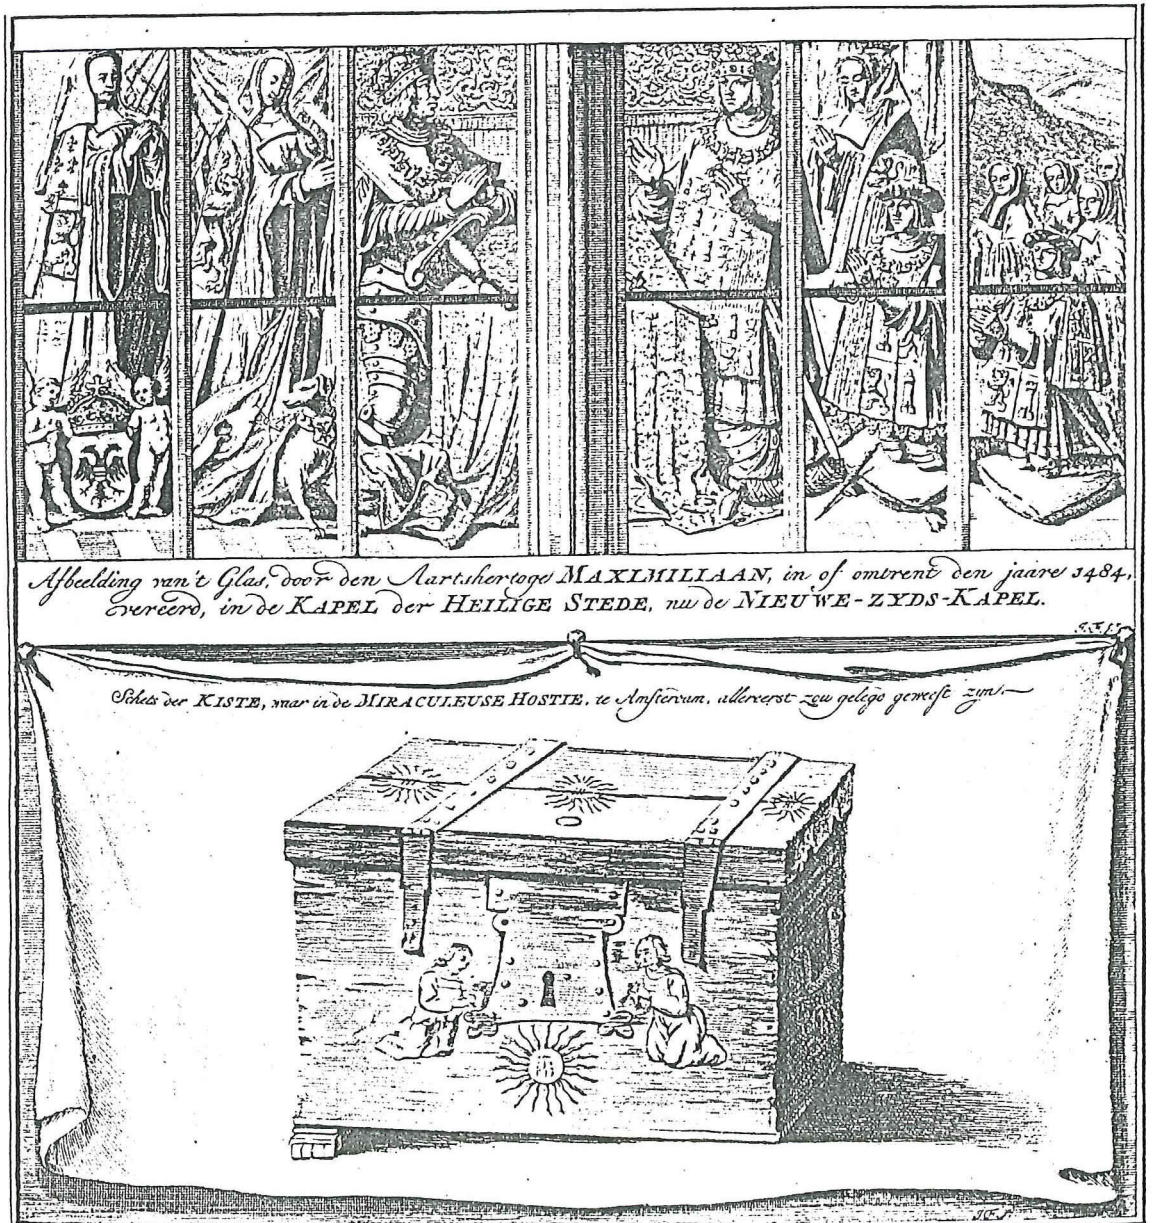 Afbeelding van 't Glas, door den Aartshertoge MAXIMILIAAN, in of omtrent den jaare 1484,
vereerd, in de KAPEL der HEILIGE STEDE, nu de NIEUWE-ZYDS-KAPEL.
Schets der KISTE, waar in de MIRACULEUSE HOSTIE, te Amsterdam, allereerst zou gelegd geweest zyn.